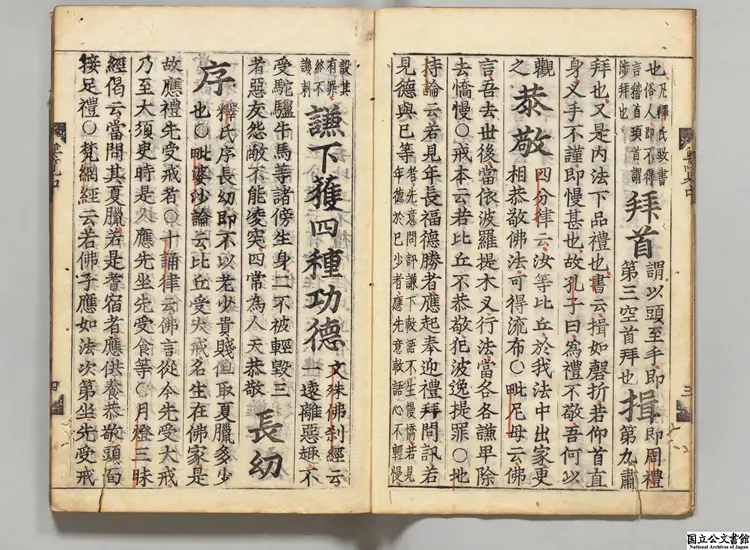 也及釋氏致書
也俗人即不得
言稽首頓首謂
涉拜也
拜首
謂以頭至手即周禮
第三空首拜也
揖
第九肅
拜也又是内法下品禮也書云揖如磬折若仰首直
身叉手不謹即慢甚也故孔子曰為禮不敬吾何以
觀之
恭敬
四分律云汝等比丘於我法中出家更
相恭敬佛法可得流布〇毗尼母云佛
言吾去世後當依波羅提木叉行法當各各謙卑除
去憍慢〇戒本云若比丘不恭敬犯波逸提罪〇地
持論云若見年長福德勝者應起奉迎禮拜問訊若
見德與已等
者先意問訊謙下軟語不生慢憍若見
年德於已少者應先意軟語心不輕慢
設其
有罪
終不
譏刺
謙下獲四種功德
文殊佛刹經云
一遠離惡趣不
受駝驢牛馬等諸傍生身二不被輕毀三
者惡友怨敵不能凌突四常為人天恭敬
長幼
序
釋氏序長幼即不以老少貴賤但取夏臘多少
也〇毗婆沙論云比丘受大戒名生在佛家是
故應禮先受戒者〇十誦律云佛言從今先受大戒
乃至大須臾時是人應先坐先受食等〇月燈三昧
經偈云當問其夏臘若是耆宿者應供養恭敬頭面
接足禮〇梵網經云若佛子應如法次第坐先受戒
要覽中
三
要覽中
四
国立公文書館
National Archives of Japan